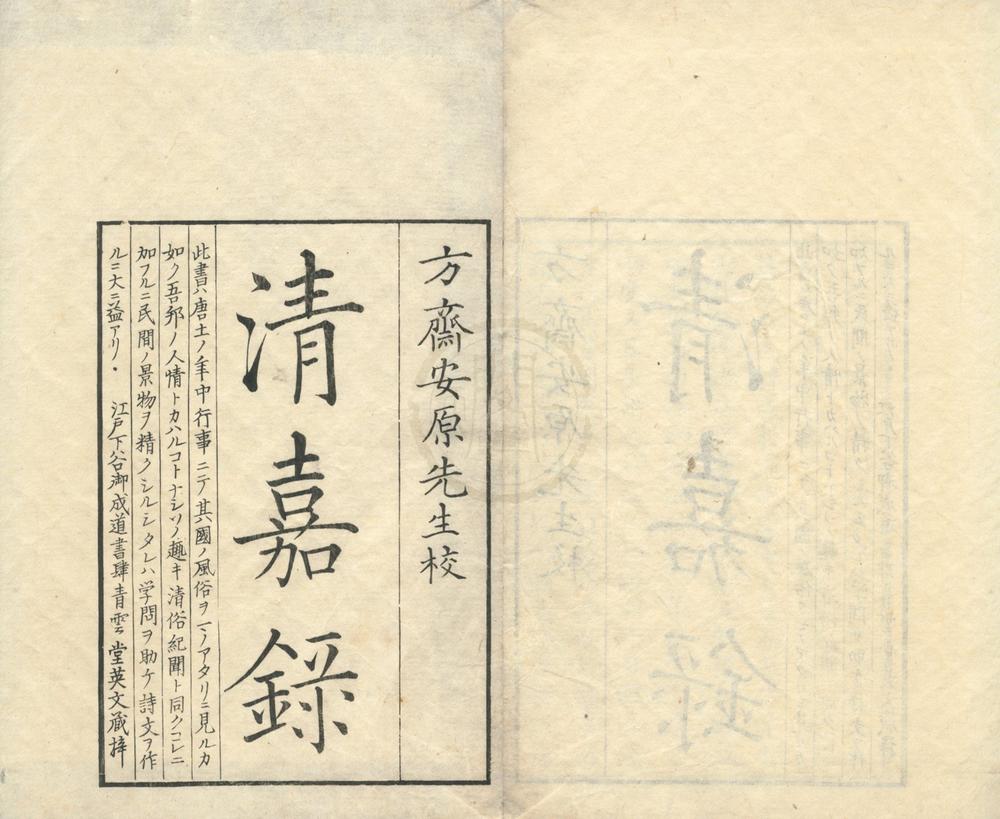 方齋安原先生校
清嘉錄
此書ハ唐土ノ年中行事ニテ其國ノ風俗ヲマノアタリニ見ルカ
如ク吾邦ノ人情トカハルコトナシソノ趣キ清俗紀聞ト同クコレニ
加フルニ民間ノ景物ヲ精クシルシタレハ学問ヲ助ケ詩文ヲ作
ルニ大ニ益アリ・ 江戸下谷御成道書肆青雲堂英文蔵梓